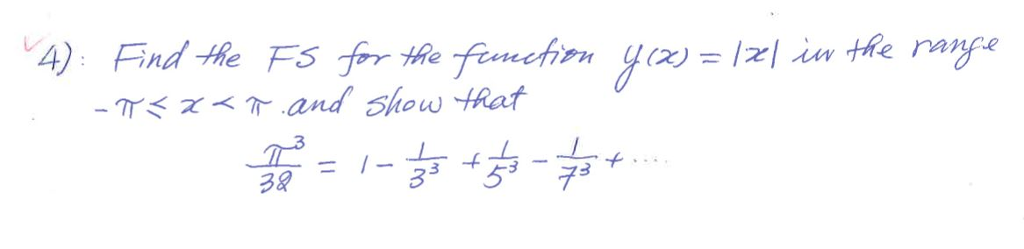 4): Find the FS for the function y(x) = |x| in the range
-π ≤ x < π . and show that
π³/32 = 1 - 1/3³ + 1/5³ - 1/7³ + ....